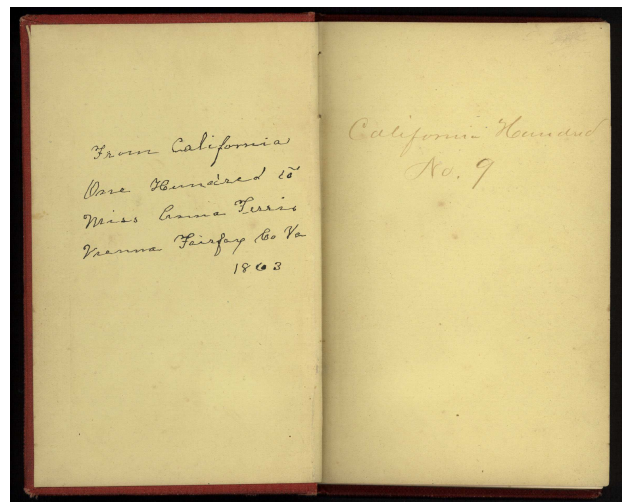 From California
One Hundred to
Miss Emma Ferris
Vienna Fairfax Co Va
1863
California Hundred
No. 9